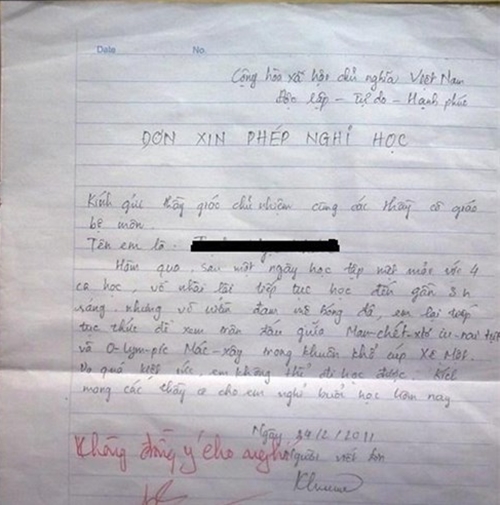 Date No.
Cộng hòa xã hội chủ nghĩa Việt Nam
Độc lập - Tự do - Hạnh phúc
ĐƠN XIN PHÉP NGHỈ HỌC
Kính gửi thầy giáo chủ nhiệm cùng các thầy cô giáo
bộ môn
Tên em là :
Hôm qua, sau một ngày học tập mệt mỏi với 4
ca học, về nhà lại tiếp tục học đến gần 3h
sáng. nhưng vì vốn đam mê bóng đá, em lại tiếp
tục thức để xem trận đấu giữa Man-chét-xtơ iu-nai-tựt
và O-lym-píc Mác-xây trong khuôn khổ cúp Xê Một.
Do quá kiệt sức, em không thể đi học được.
mong các thầy cô cho em nghỉ buổi học hôm nay
Ngày 24/2/2011
Không đồng ý cho nghỉ
Người viết đơn